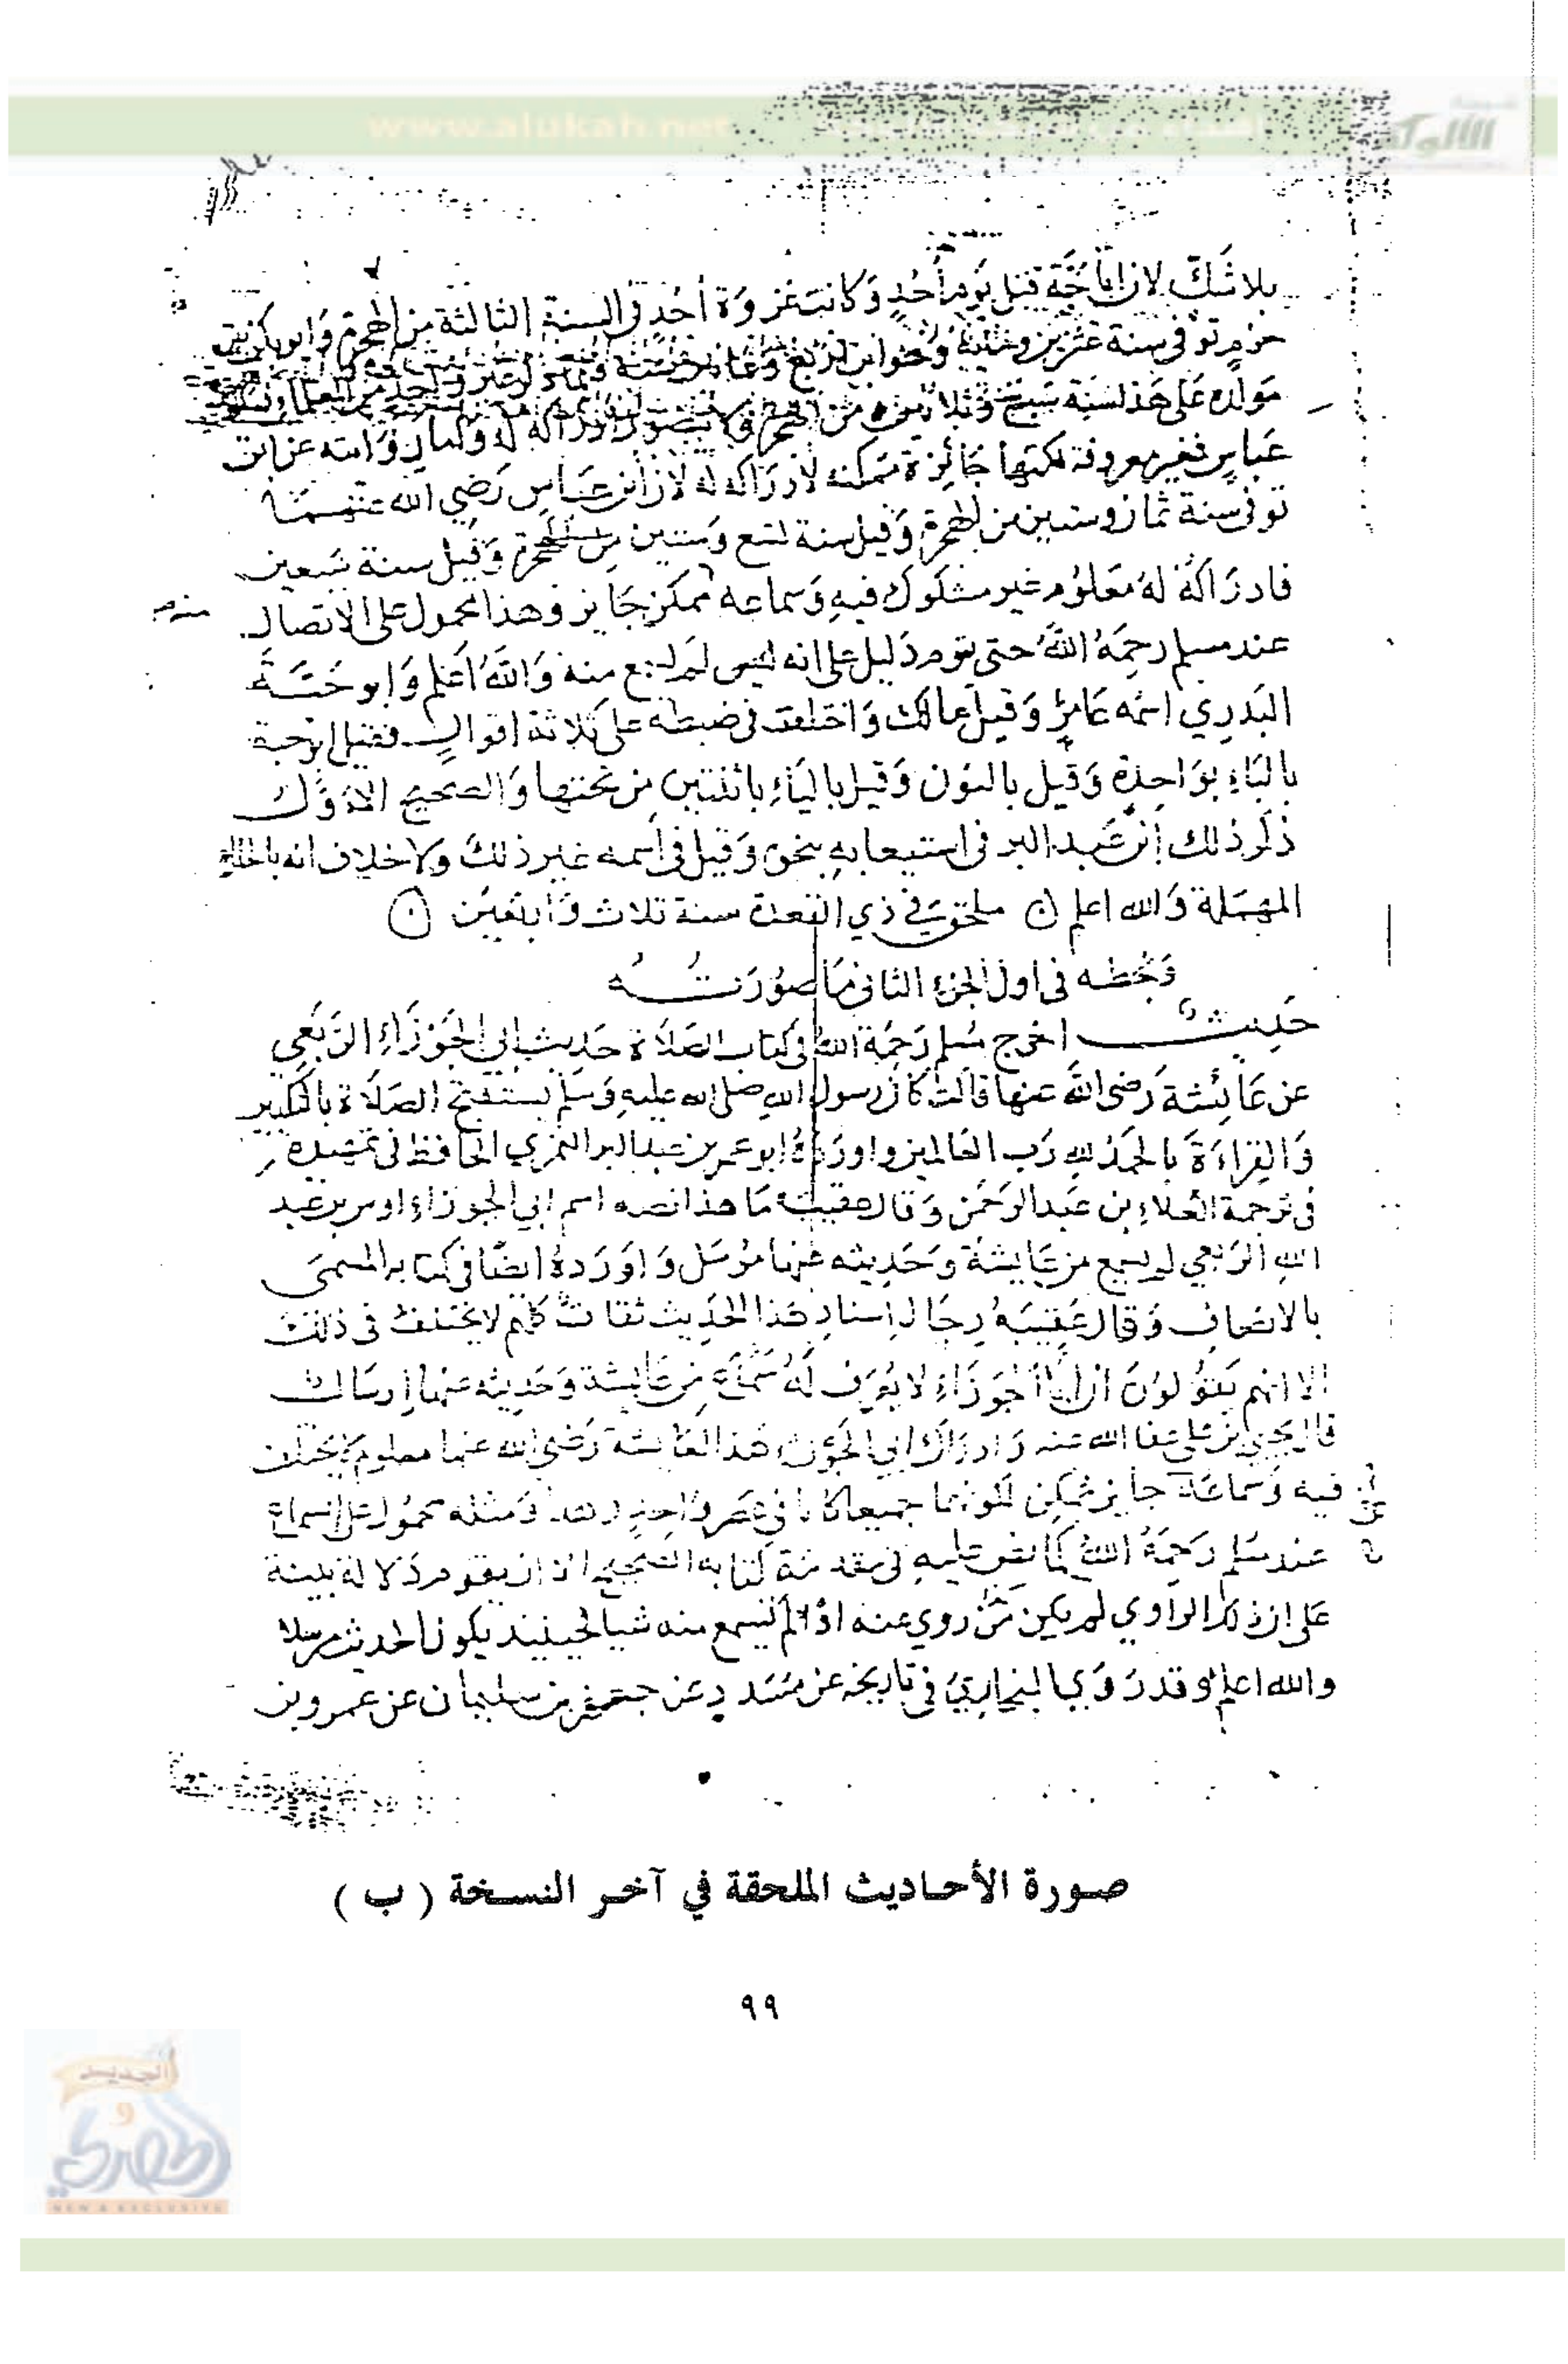 www.alukah.net
الألوكة
بلا شَكّ لان ابا حَبَّة قتل يَوم أحُدٍ وَكانت غزوَة أحُد في السنة الثالثة من الهجرة وَابو بكر بن
حزمٍ توفي سنة عشرين ومئة وَهُو ابن اربع وَثمانين سنة
مَولده عَلى هَذا سَنَة سَبع وَثلاثين من الهجرة فلا يتصور ادراكه له وَاما روَايته عن ابن
عَباسٍ فغير معروفة لكنها جَائزة ممكنة لادرَاكه له لأن ابن عباس رَضي الله عنهمَا
توفى سنة ثمان وستين من الهجرة وَقيل سنة تسع وَستين من الهجرة وَقيل سنة سَبعين
فادرَاكه لهُ مَعلوُم غير مشكوك فيهِ وَسماعه ممكن جَايز وهذا محمول على الاتصال
عند مسلم رحمَهُ اللهُ حتى يقوم دَليل على انه ليس لم يسمع منه وَاللهُ أعَلم وَابو حَبَّة
البَدري اسمه عَامرٌ وَقيل مالك وَاختلف في ضبطه على ثلاثة اقوالٍ فقيل ابو حبة
بالبَاءِ بوَاحِدة وَقيل بالنون وَقيل بالياءِ باثنتين من تحتها وَالصحيح الأوَّل
ذكر ذلك ابن عَبد البر في استيعابهِ بنحوه وَقيل في أسمه غير ذلك وَلا خلاف انه بالحاء
المهمَلة وَالله اعلم ملحق في ذي القعدة سنة ثلاث وَأربعين
وَبخطه في اول الجزء الثاني مَا صوُرَتُه
حَديث اخرج مُسلم رَحمَهُ الله في كتاب الصَلاة حَديث ابي الجَوْزَاءِ الرَّبَعي
عن عَائشة رَضى الله عنها قالت كان رسول اللهِ صلى الله عليهِ وَسلم يستفتح الصَلاة بالتكبير
وَالقِراءَةَ بالحَمدُ للهِ رَب العَالمين واورَدَهُ ابو عمر بن عبد البر النمري الحَافظ في تمهيده
في ترجمة العَلاءِ بن عَبد الرحمن وَقال عقيبَهُ مَا هذا نصه اسم ابي الجوزاء اوس بن عبد
اللهِ الرَبعي لم يسمع من عَايشة وَحَديثه عنها مُرسَل وَاوَرَدهُ ايضًا في كتابه المسمى
بالانصاف وَقال عَقيبَهُ رجَال اسنادِ هَذا الحَديث ثقاتٌ كلهم لا يختلف في ذلك
الا انهم يَقوُلوُنَ ان ابا الجوَزَاءِ لا يعُرَف لهُ سَمَاعٌ من عَايشة وَحَديثه عنها إرسَال
قال يحيى بن علي عفا الله عنه وَادراك ابي الجَوزاء هَذا لعَايشة رَضي الله عنها معلوم لا يختلف
فيه وَسَماعُه جايز ممُكن لكونهما جميعا كانا في عَصر وَاحِدٍ وَمثله محمُول على السماع
عند مُسلم رَحِمَهُ اللهُ كما نص عليهِ في مقدمَة كتابه الصَحيح الا ان يقوم دَلالة بينة
عَلى ان ذلك الراوي لم يكن ممّن روي عنه اذ لم يسمع منه شيا فحينئذ يكون الحديث مرسلا
والله اعلم وقد رَوَى البخاريّ في تاريخه عن مُسَددٍ عن جعفر بن سليمان عن عمرو بن
صورة الأحاديث الملحقة في آخر النسخة ( ب )
٩٩
الجديد
و
الحصري
NEW & EXCLUSIVE